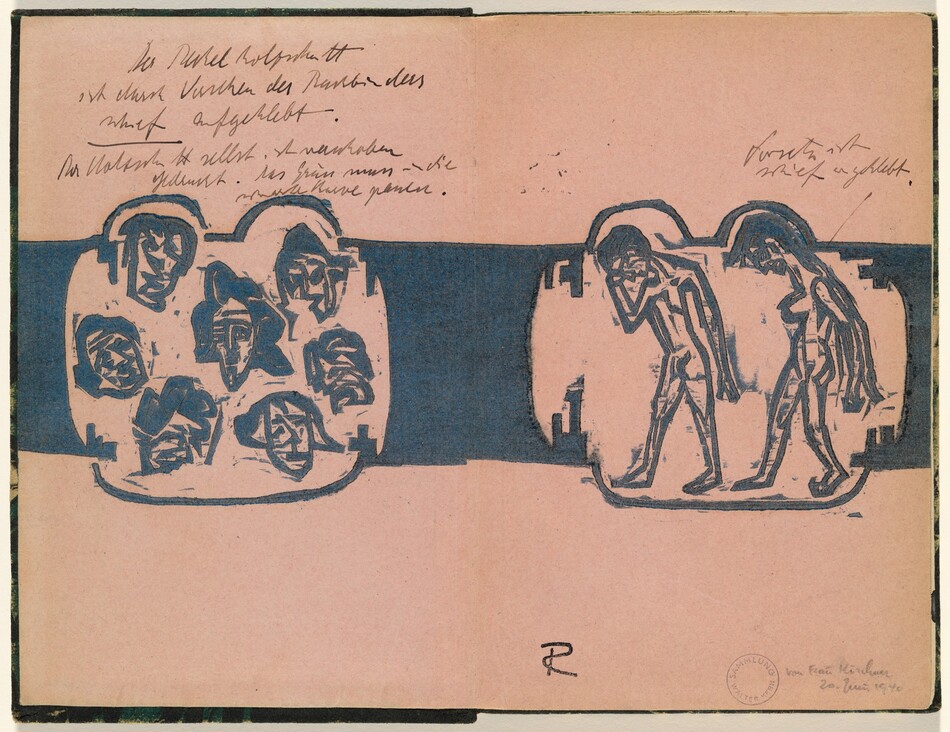 Der Deckel Holzschnitt
ist durch Versehen des Buchbinders
schief aufgeklebt.
Der Holzschnitt selbst ist verschoben
gedruckt. Das Grün muss in die
Kurve passen.
Vorsatz ist
schief eingeklebt.
SAMMLUNG
von Frau Kirchner
20. 1940